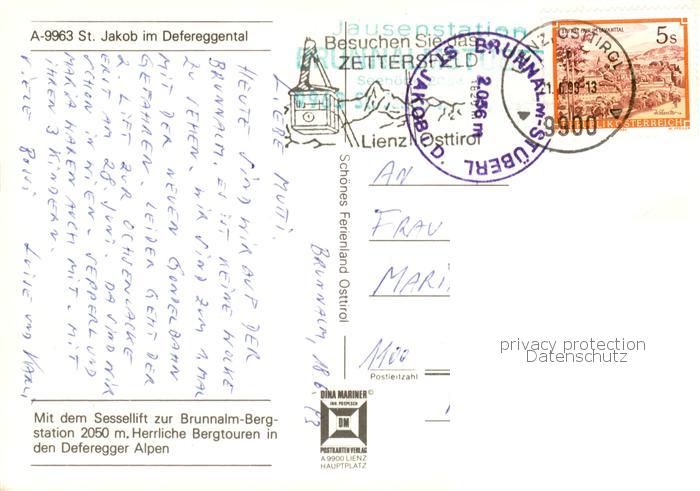 A-9963 St. Jakob im Defereggental
Jausenstation
Besuchen Sie das
ZETTERSFELD
Lienz Osttirol
BRUNNALM-STÜBERL
2.056 m
ST. JAKOB i. D.
9900
5s
REPUBLIK ÖSTERREICH
BRUNNALM, 18.6.93
LIEBE MUTTI.
HEUTE SIND WIR AUF DER
BRUNNALM. ES IST KEINE WOLKE
ZU SEHEN. WIR SIND ZUM 1. MAL
MIT DER NEUEN GONDELBAHN
GEFAHREN. LEIDER GEHT DER
2 LIFT ZUR OCHSENLACKE
ERST AM 28 JUNI. DA SIND WIR
SCHON IN WIEN. SEPPERL UND
MARIA WAREN AUCH MIT. MIT
IHREN 3 KINDERN.
VIELE BUSSI LUISE UND KARLI
Schönes Ferienland Osttirol
AN
FRAU
MARI
1100
Postleitzahl
privacy protection
Datenschutz
DINA MARINER ©
DM
POSTKARTENVERLAG
A 9900 LIENZ
HAUPTPLATZ
Mit dem Sessellift zur Brunnalm-Berg-
station 2050 m. Herrliche Bergtouren in
den Deferegger Alpen